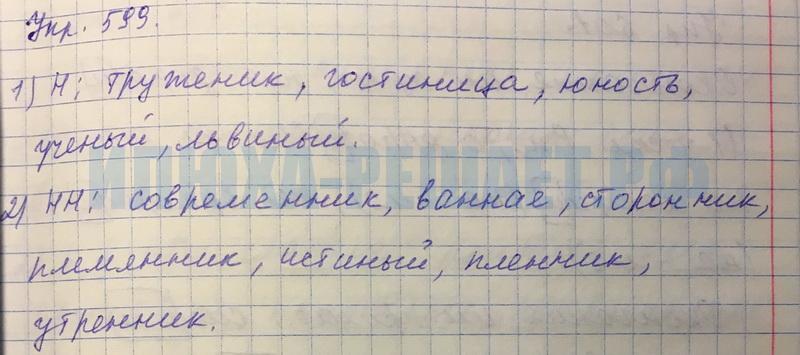 Упр. 599.
1) Н: труженик, гостиница, юность,
ученый, львиный.
ИЛЮХА-РЕШАЕТ.РФ
2) НН: современник, ванная, сторонник,
племянник, истиный, пленник,
утренник.